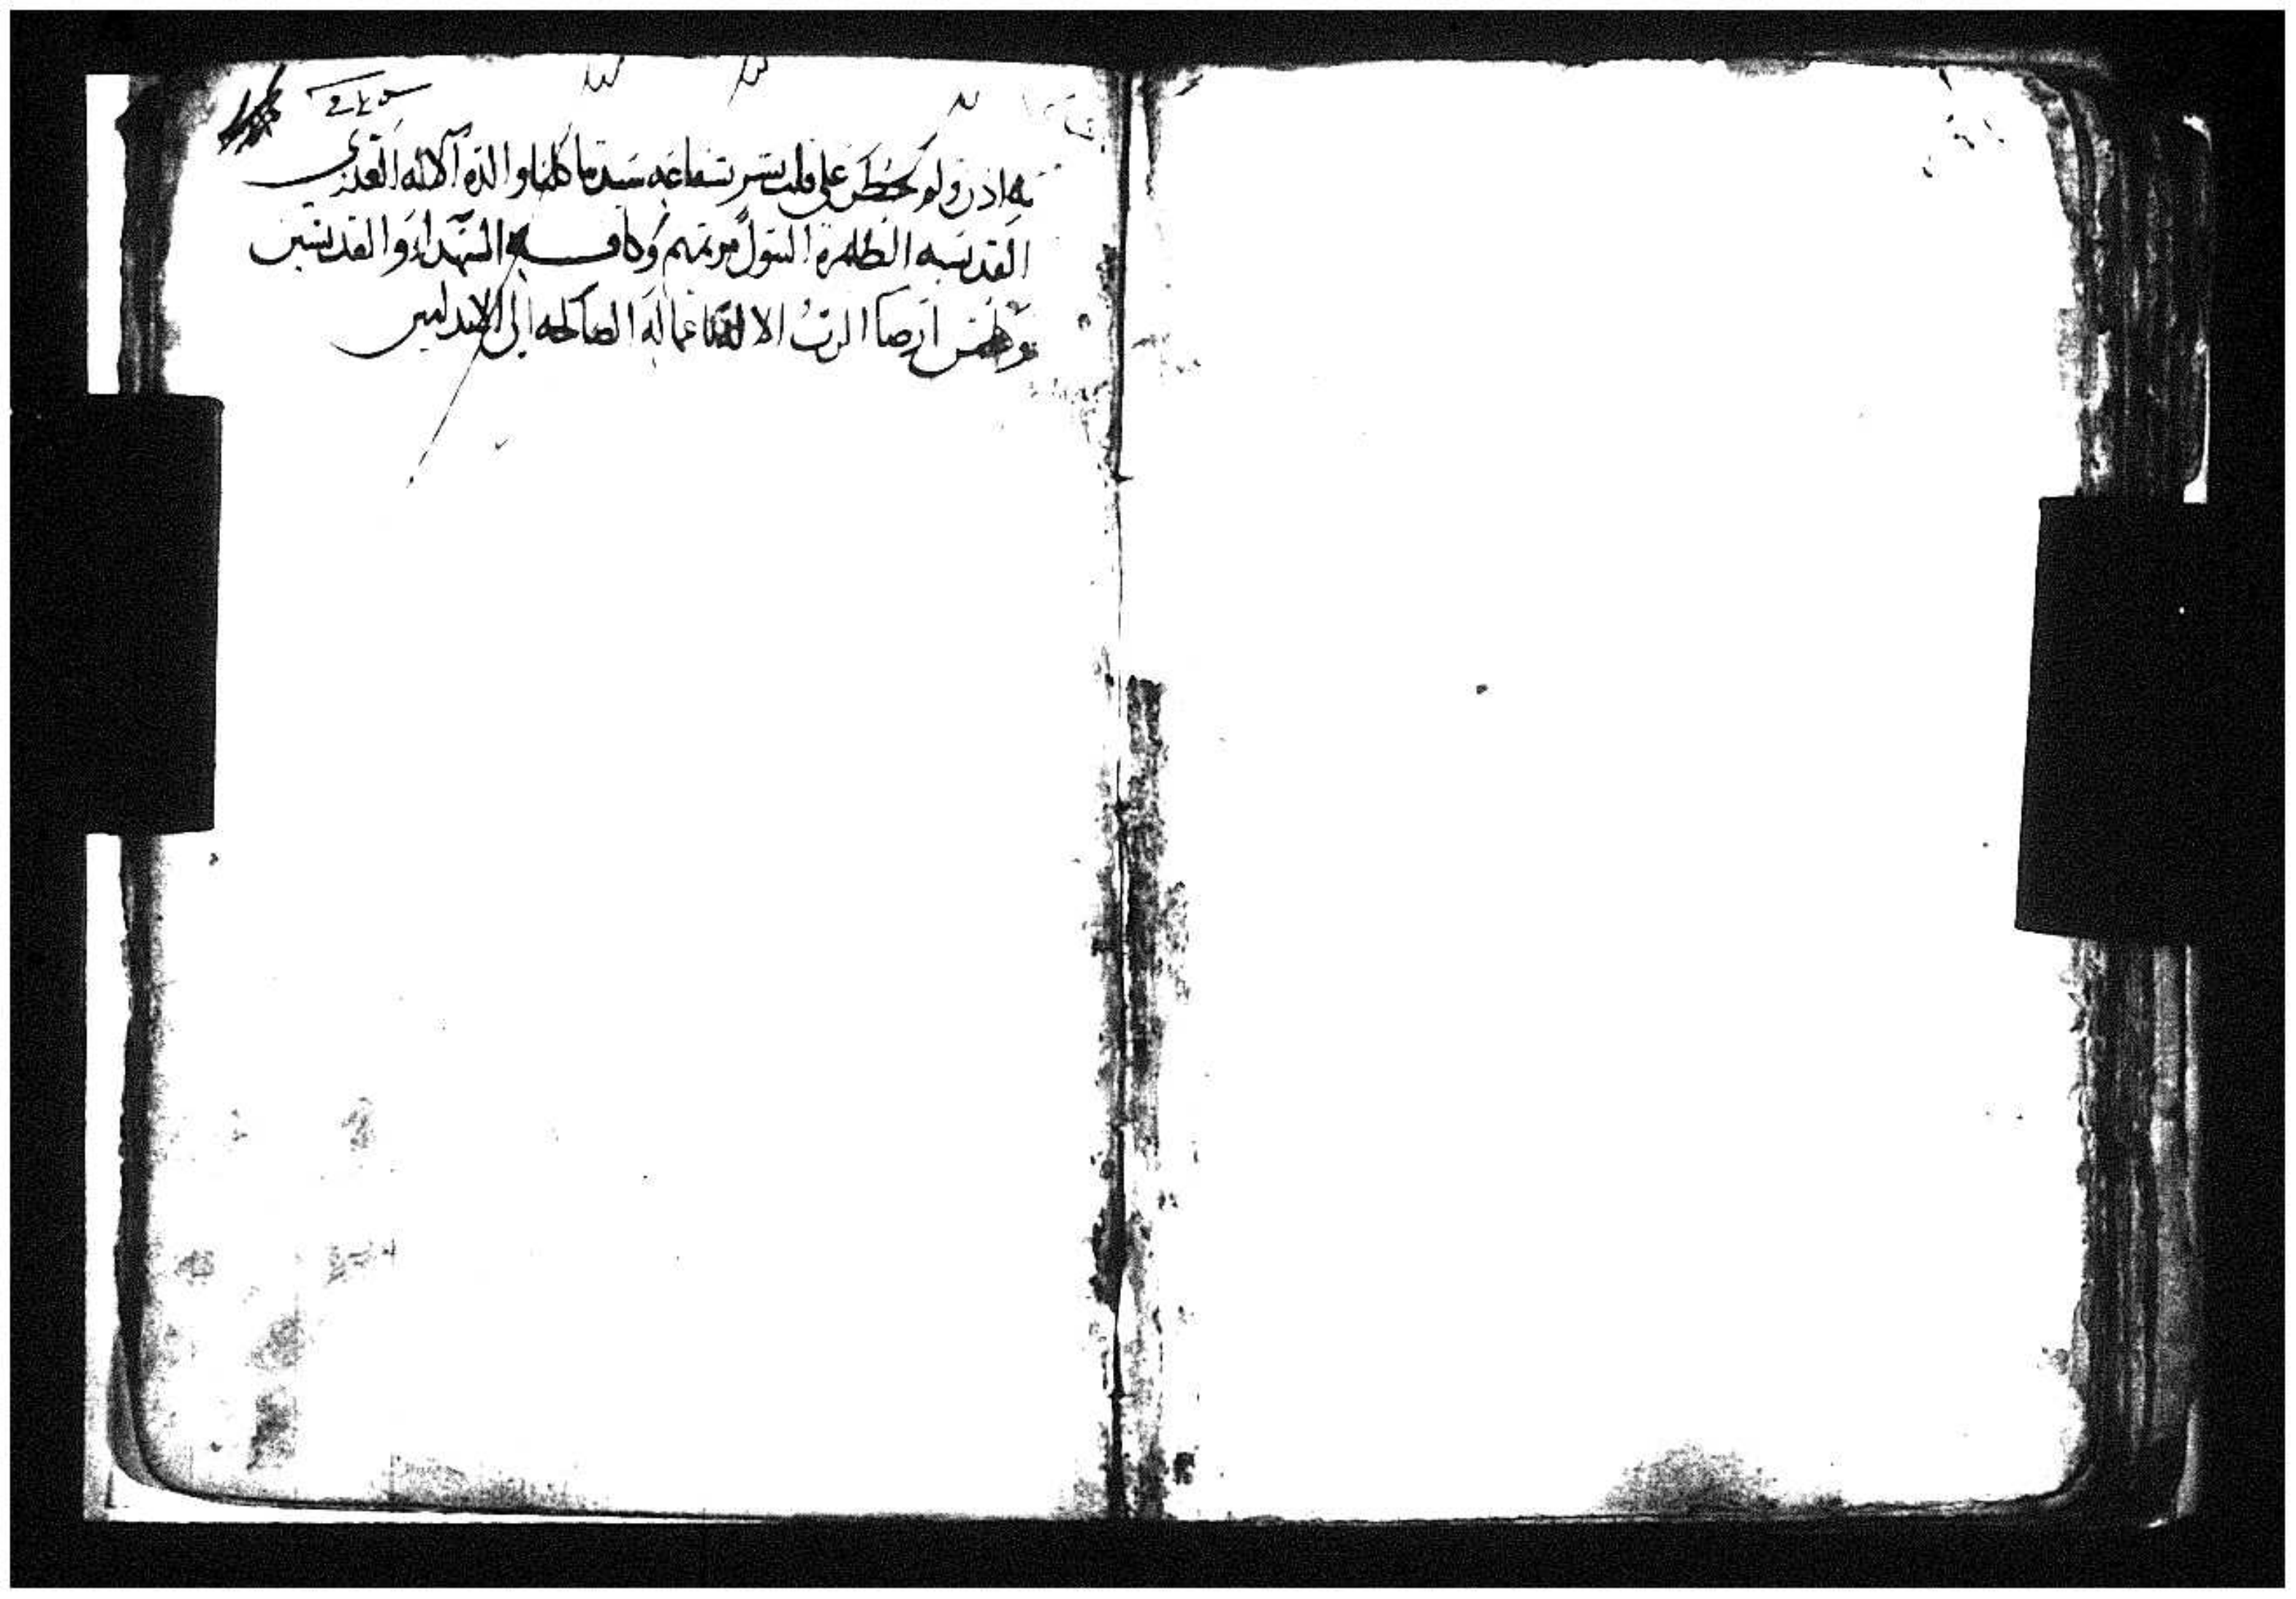 به اذن ولم يخطر على قلب بشر بشفاعه سيدتنا كلنا والدة الاله
القديسه الطاهرة البتول مرتمريم وكافة الشهداء والقديسين
ومن ارضا الرب الاله باعماله الصالحه الى الابد امين